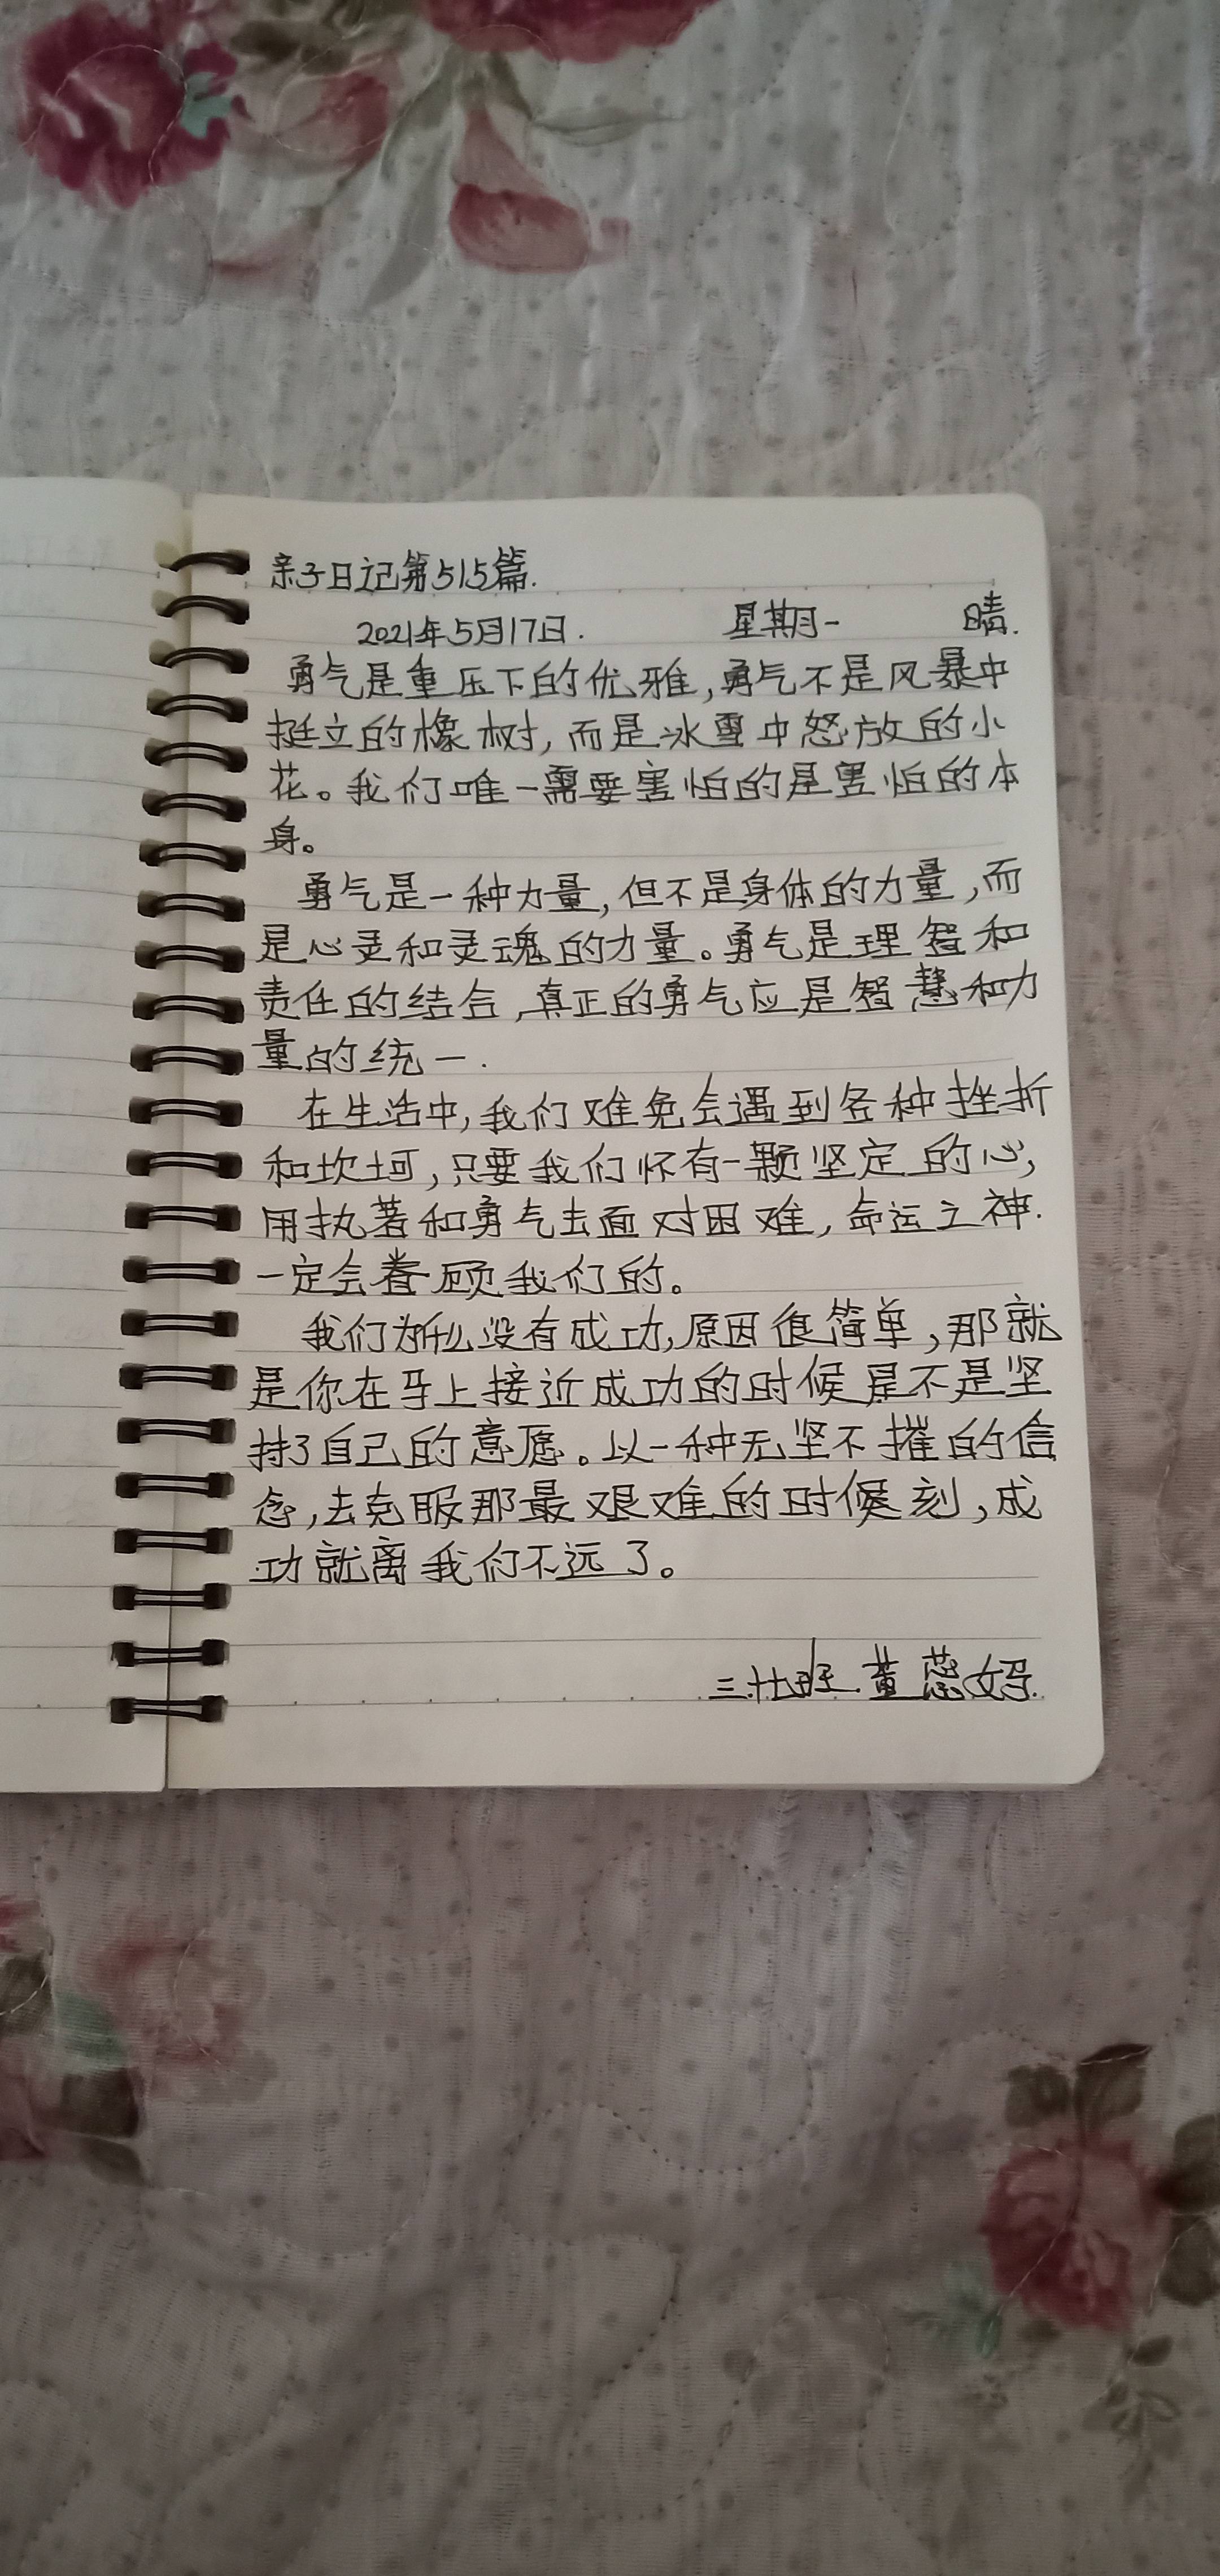 亲子日记第515篇.
2021年5月17日. 星期一 晴.
勇气是重压下的优雅,勇气不是风暴中
挺立的橡树,而是冰雪中怒放的小
花。我们唯一需要害怕的是害怕的本
身。
勇气是一种力量,但不是身体的力量,而
是心灵和灵魂的力量。勇气是理智和
责任的结合,真正的勇气应是智慧和力
量的统一.
在生活中,我们难免会遇到各种挫折
和坎坷,只要我们怀有一颗坚定的心,
用执著和勇气去面对困难,命运之神.
一定会眷顾我们的。
我们为什么没有成功,原因很简单,那就
是你在马上接近成功的时候是不是坚
持了自己的意愿。以一种无坚不摧的信
念,去克服那最艰难的时候刻,成
功就离我们不远了。
三.十七班.董蕊妈.